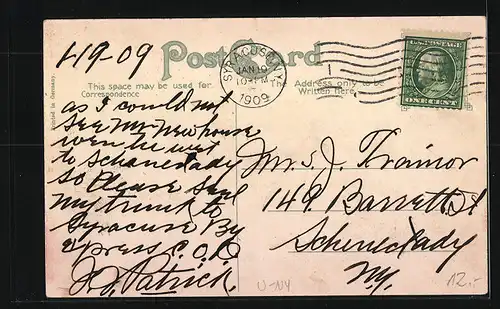 1-19-09
Post Card
SYRACUSE, N.Y.
JAN 19
1909
1
U.S. POSTAGE
ONE CENT
This space may be used for
Correspondence
The Address only to be
Written here.
Printed in Germany.
as I could not
See Mr Newhouse
wen he wet
to Schanectady
So Please Send
My trunk to
Syracuse By
Express C.O.D
J. Patrick.
Mr. J. Trainor
149 Barrett St
Schenectady
N.Y.
U-NY
12.-